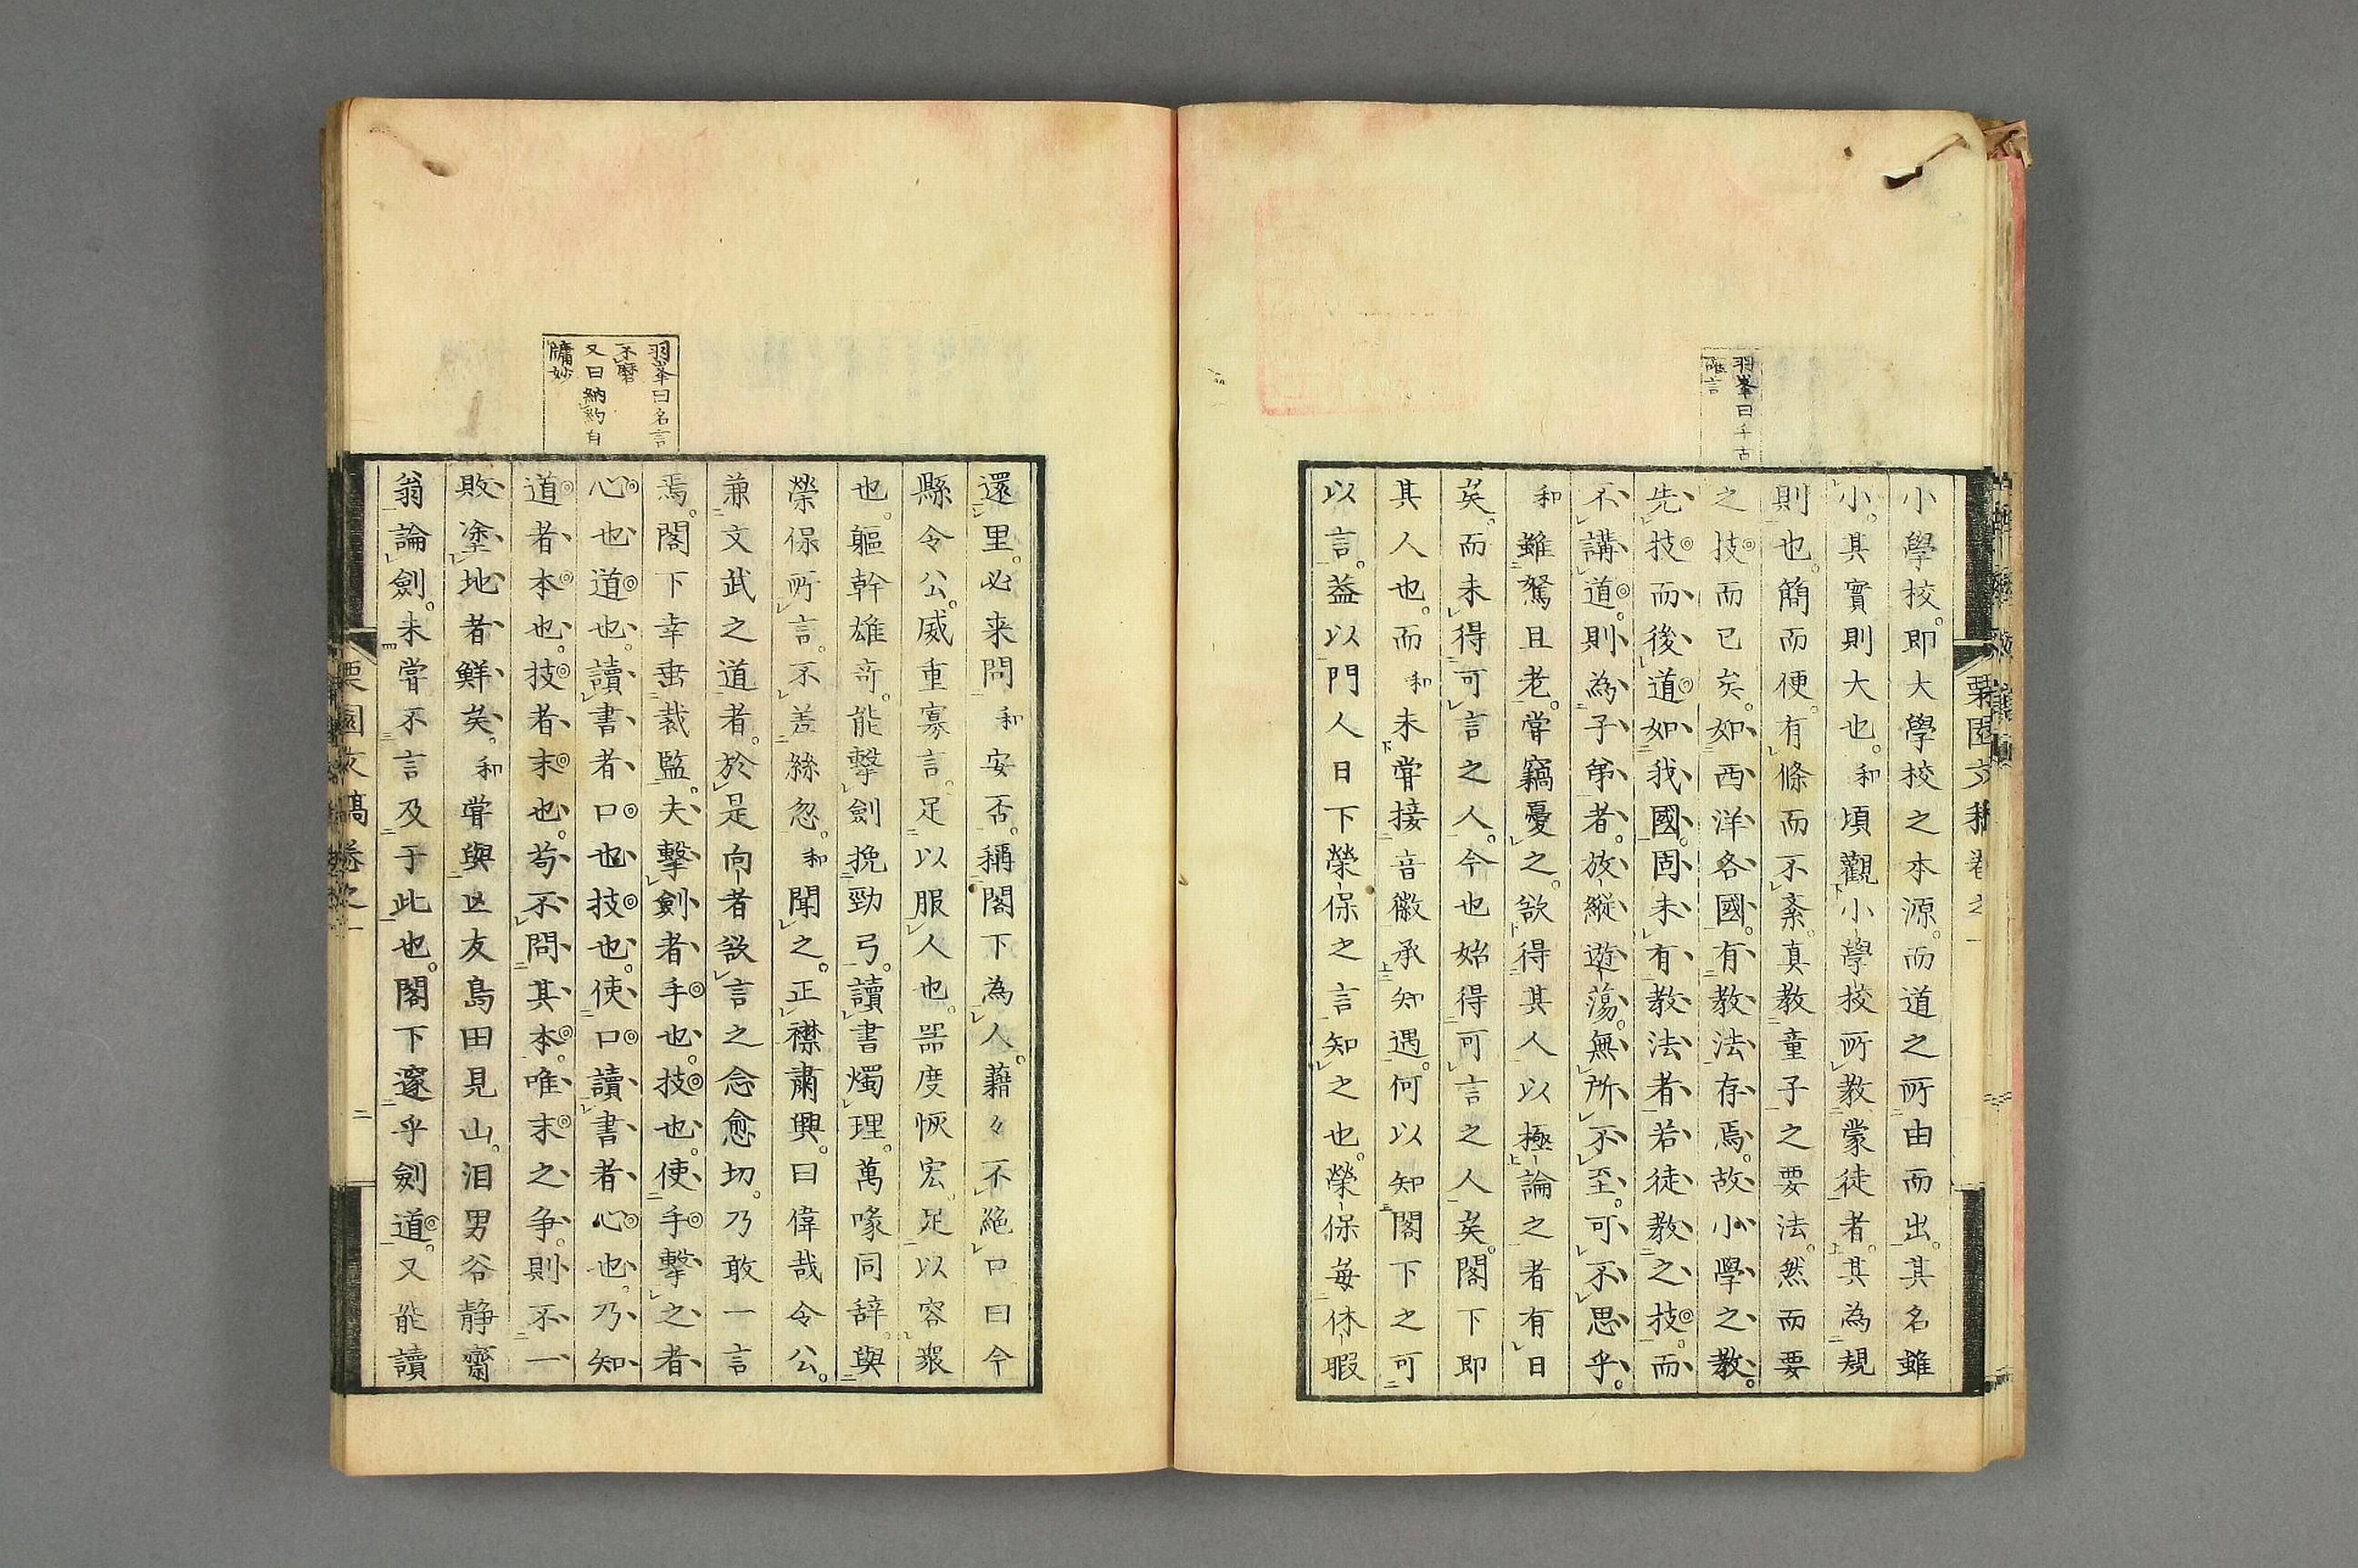 羽峯曰千古
確言
小學校。即大學校之本源。而道之所由而出。其名雖
小。其實則大也。和頃觀小學校所教蒙徒者。其為規
則也。簡而便。有條而不紊。真教童子之要法。然而要
之技而已矣。如西洋各國。有教法存焉。故小學之教。
先技而後道。如我國。固未有教法者。若徒教之技。而
不講道。則為子弟者。放縱遊蕩。無所不至。可不思乎。
和雖駑且老。甞竊憂之。欲得其人以極論之者有日
矣。而未得可言之人。今也始得可言之人矣。閣下即
其人也。而和未甞接音徽承知遇。何以知閣下之可
以言。葢以門人日下榮保之言知之也。榮保每休暇
栗園文稿卷之一
羽峯曰名言
不磨
又曰納約自
牖妙
還里。必来問和安否。稱閣下為人。藉々不絶口曰今
縣令公。威重寡言。足以服人也。器度恢宏。足以容衆
也。軀幹雄奇。能擊劍挽勁弓。讀書燭理。萬喙同辞。與
榮保所言。不差絲忽。和聞之。正襟肅興。曰偉哉令公。
兼文武之道者。於是向者欲言之念愈切。乃敢一言
焉。閣下幸垂裁監。夫擊劍者手也。技也。使手擊之者
心也。道也。讀書者口也技也。使口讀書者心也。乃知
道者本也。技者末也。苟不問其本。唯末之争。則不一
敗塗地者鮮矣。和甞與亡友島田見山。泪男谷静齋
翁論劍。未甞不言及于此也。閣下邃乎劍道。又能讀
栗園文稿卷之一
二